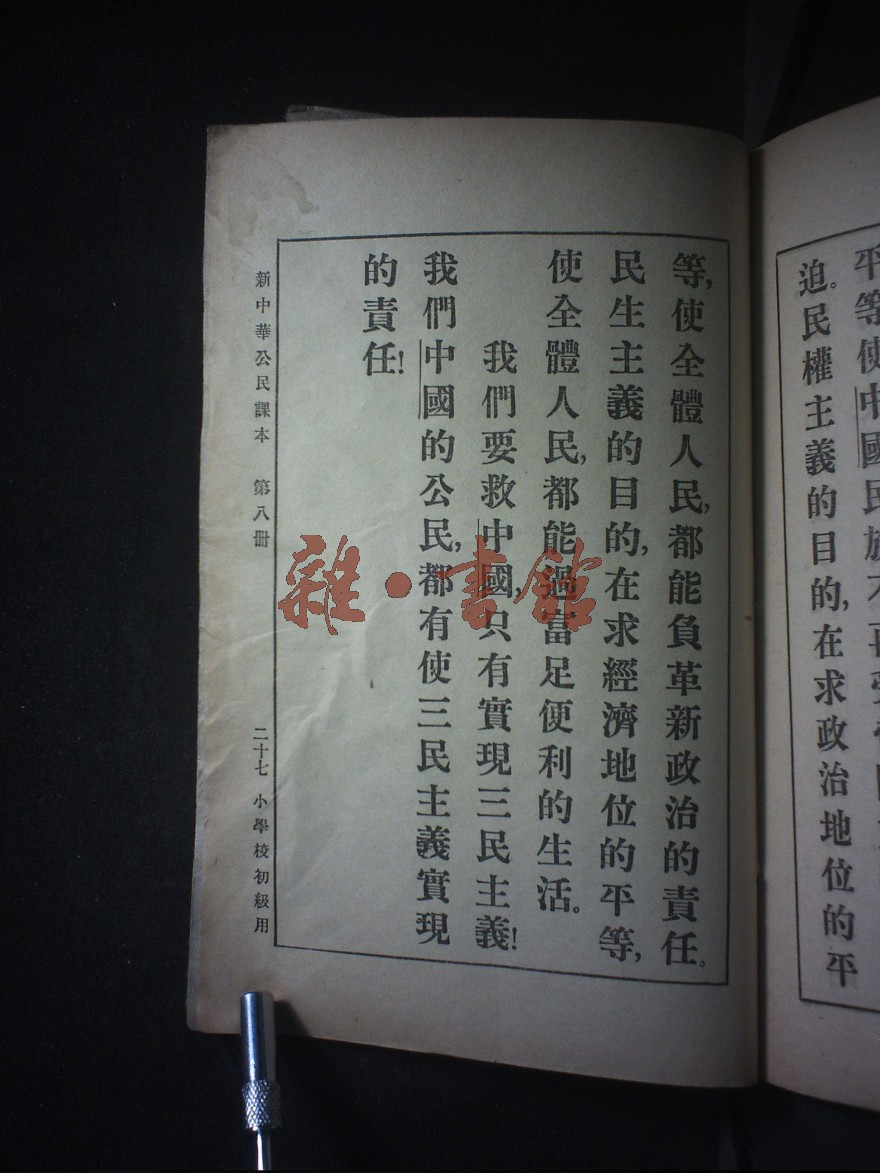 平等，使中國民族不再受
迫。民權主義的目的，在求政治地位的平
等，使全體人民，都能負革新政治的責任。
民生主義的目的，在求經濟地位的平等，
使全體人民，都能過富足便利的生活。
我們要救中國，只有實現三民主義！
我們中國的公民，都有使三民主義實現
的責任！
新中華公民課本 第八冊 二十七 小學校初級用
雜·書館